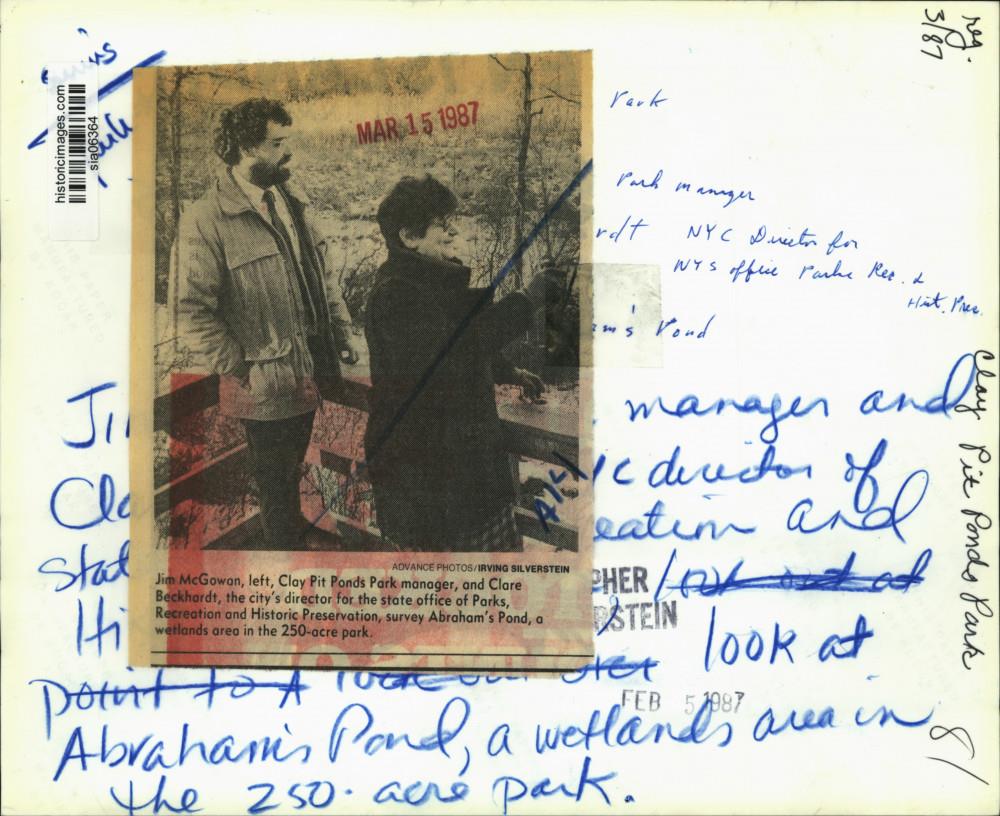 reg.
3/87
historicimages.com
sia06364
MAR 15 1987
Park
Park manager
rdt NYC Director for
NYS office Parks Rec. &
Hist. Pres.
am's Pond
manager and
director of
eation and
PHER look out at
RSTEIN
look at
point to A look out over
FEB 5 1987
Abraham's Pond, a wetlands area in
the 250-acre park.
Clay Pit Ponds Park
81
ADVANCE PHOTOS/IRVING SILVERSTEIN
Jim McGowan, left, Clay Pit Ponds Park manager, and Clare
Beckhardt, the city's director for the state office of Parks,
Recreation and Historic Preservation, survey Abraham's Pond, a
wetlands area in the 250-acre park.